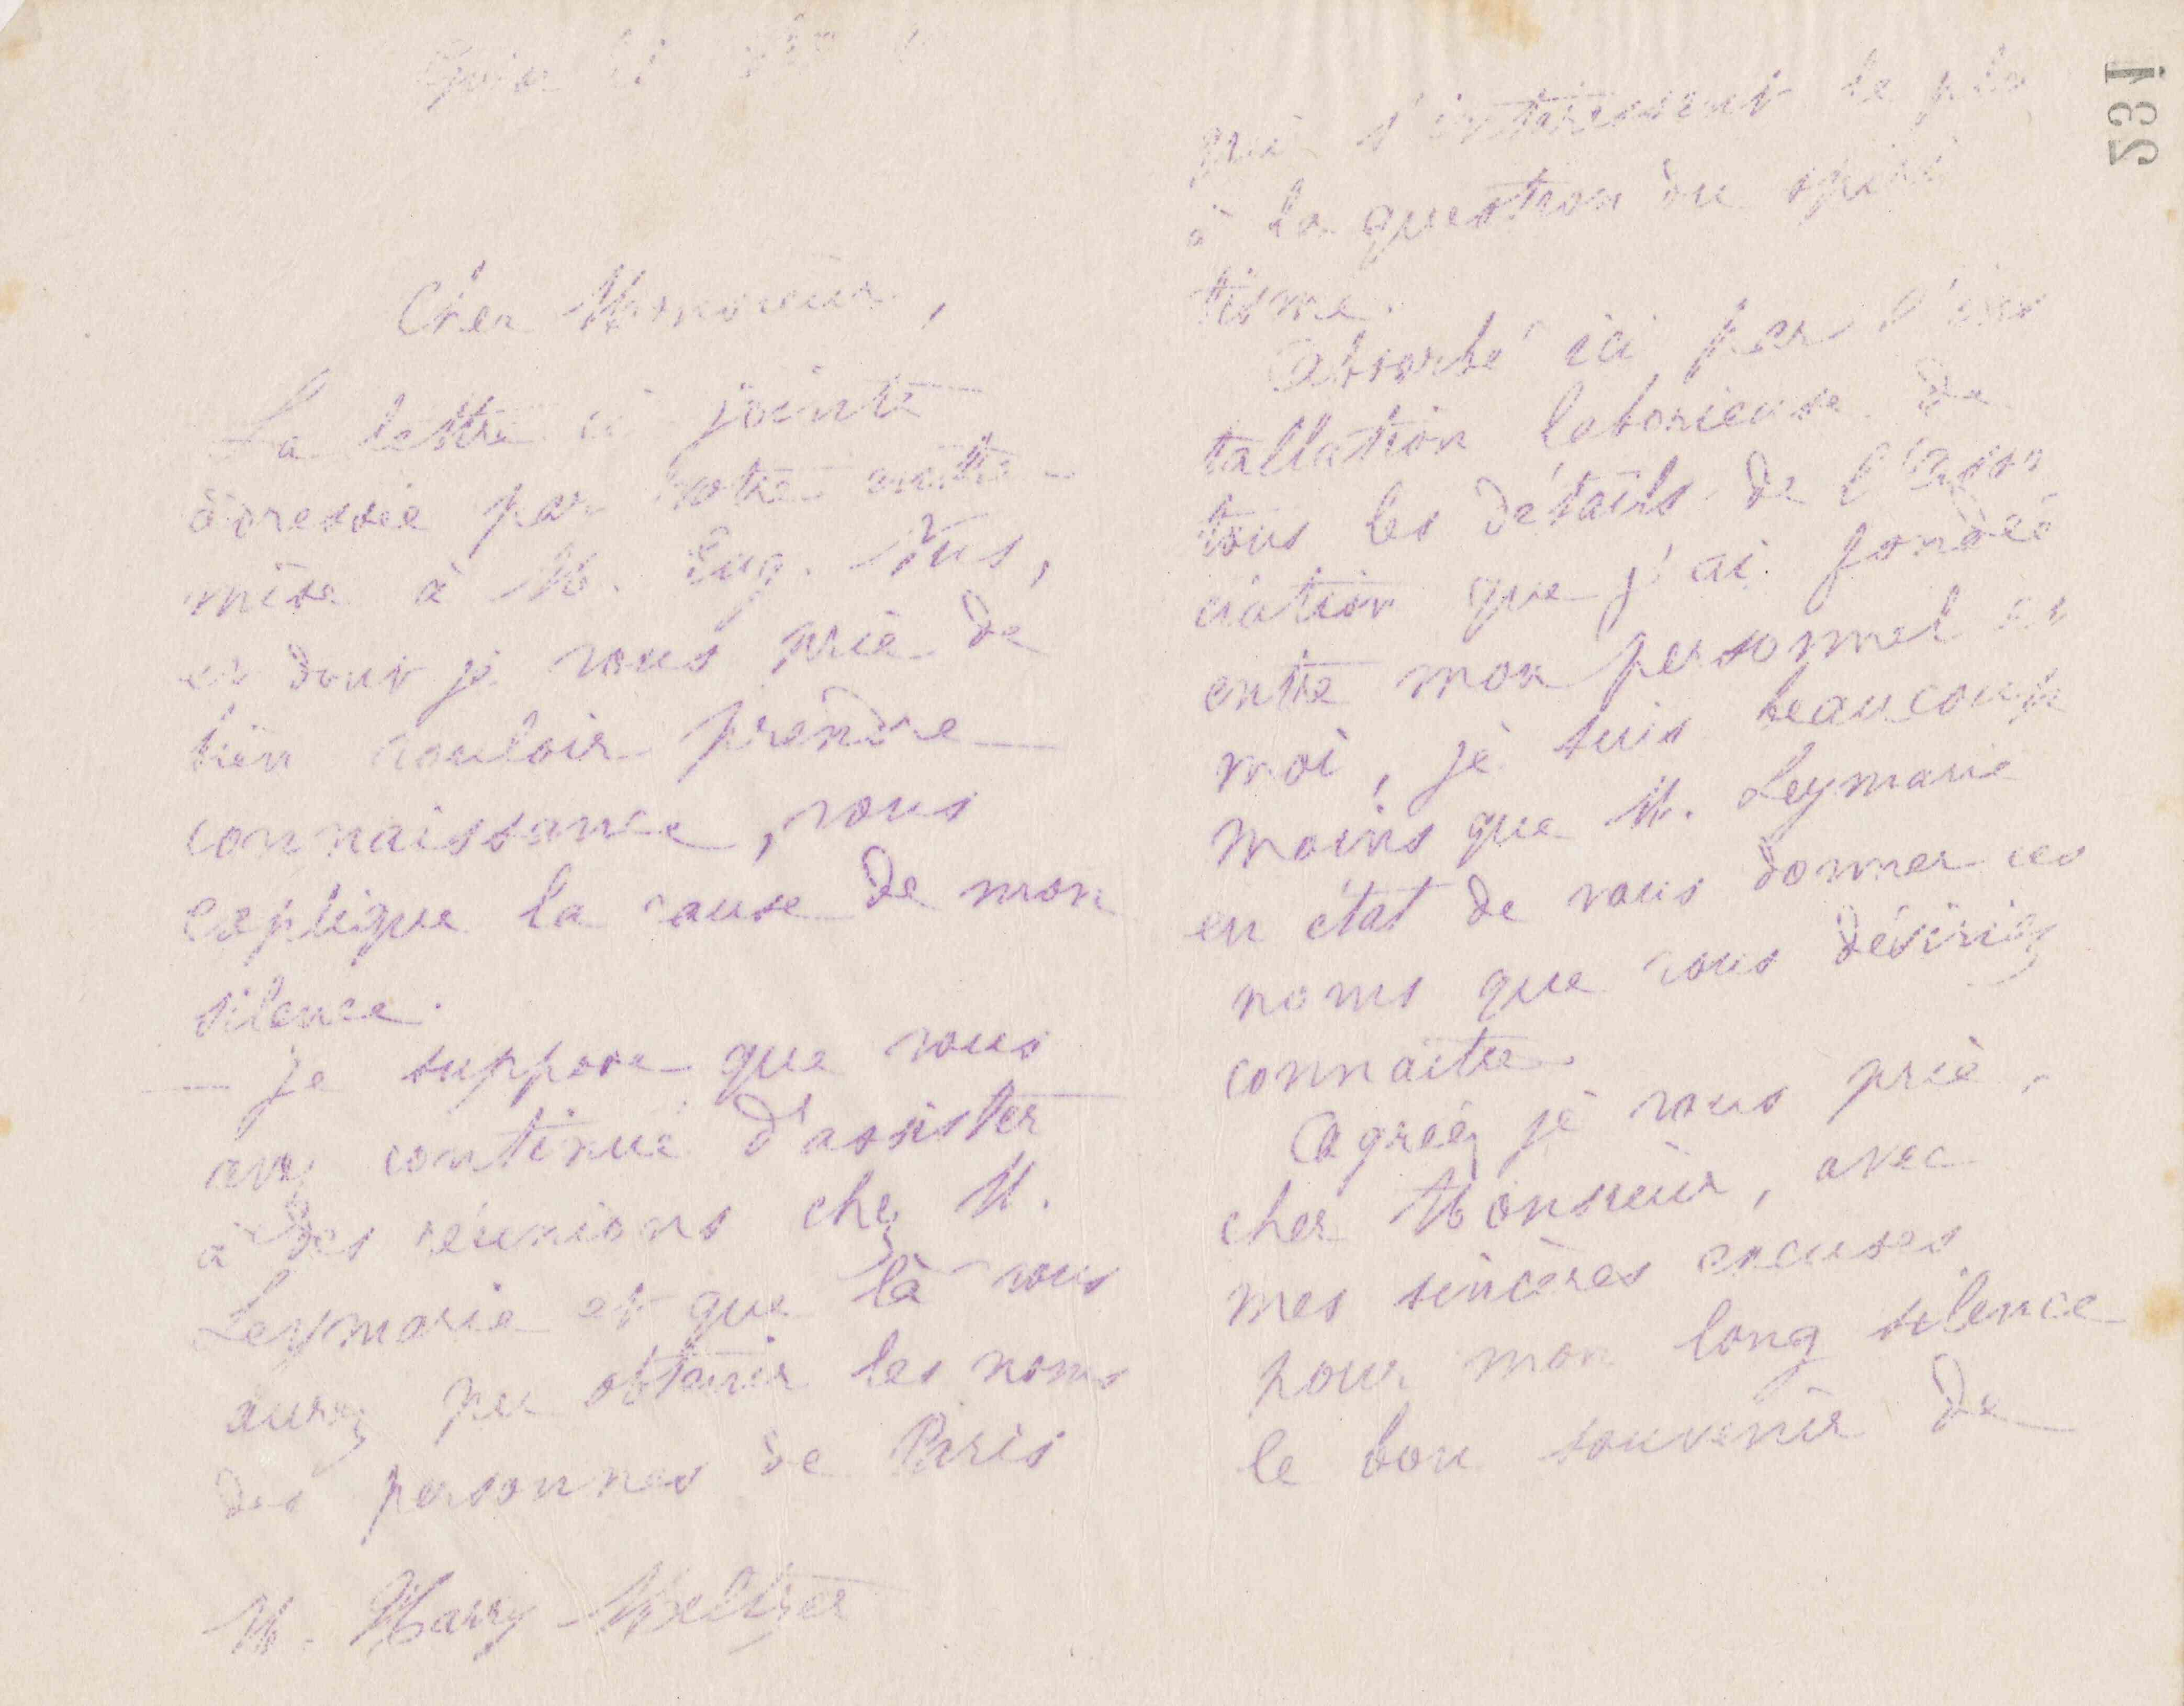 Guise le
Cher Monsieur,
La lettre ci jointe
adressée par notre entre-
mise à M. Eug. Nus,
et dont je vous prie de
bien vouloir prendre
connaissance, vous
explique la cause de mon
silence.
— Je suppose que vous
avez continué d'assister
à des réunions chez M.
Leymarie et que là vous
aurez pu obtenir les noms
des personnes de Paris
M. Harry Meltzer
qui s'intéressent le plus
à la question du spiri
tisme.
Absorbé ici par l'ins
tallation laborieuse de
tous les détails de l'asso
ciation que j'ai fondée
entre mon personnel et
moi, je suis beaucoup
moins que M. Leymarie
en état de vous donner ces
noms que vous désiriez
connaitre.
Agréez je vous prie,
cher Monsieur, avec
mes sincères excuses
pour mon long silence
le bon souvenir de
231